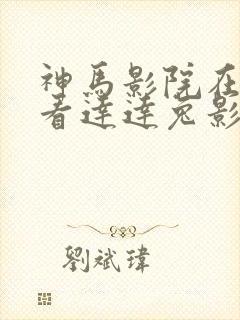 神馬影院在
看達達兔影
劉斌瑋